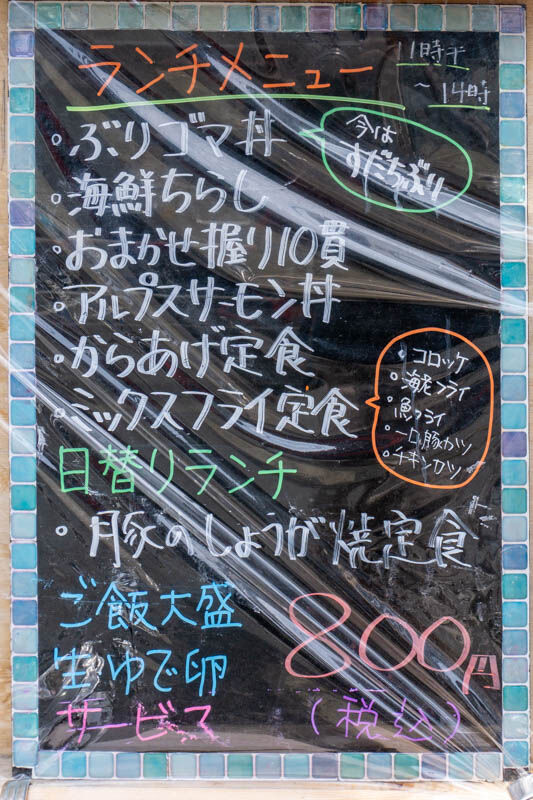 ランチメニュー
11時半
～14時
・ぶりゴマ丼
今は
すだちぶり
・海鮮ちらし
・おまかせ握り10貫
・アルプスサーモン丼
・からあげ定食
・ミックスフライ定食
・コロッケ
・海老フライ
・魚フライ
・一口豚カツ
・チキンカツ
日替りランチ
・豚のしょうが焼定食
ご飯大盛
生ゆで卵
サービス
800円
（税込）